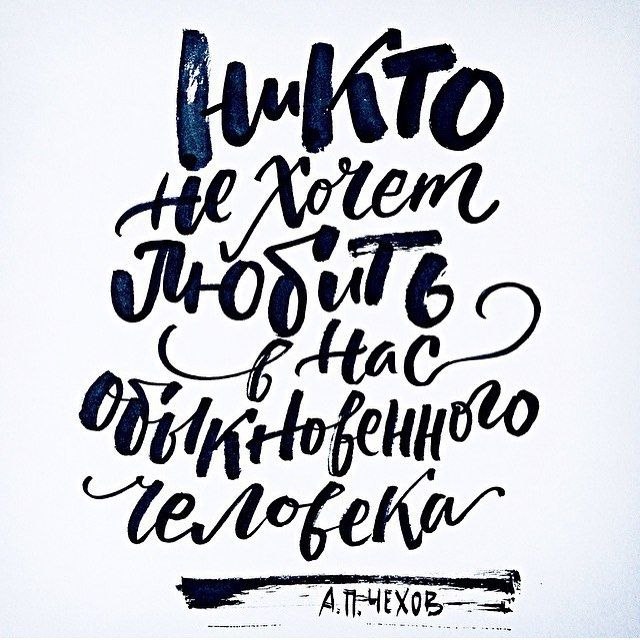 Никто
не хочет
любить
в нас
обыкновенного
человека
А.П.ЧЕХОВ